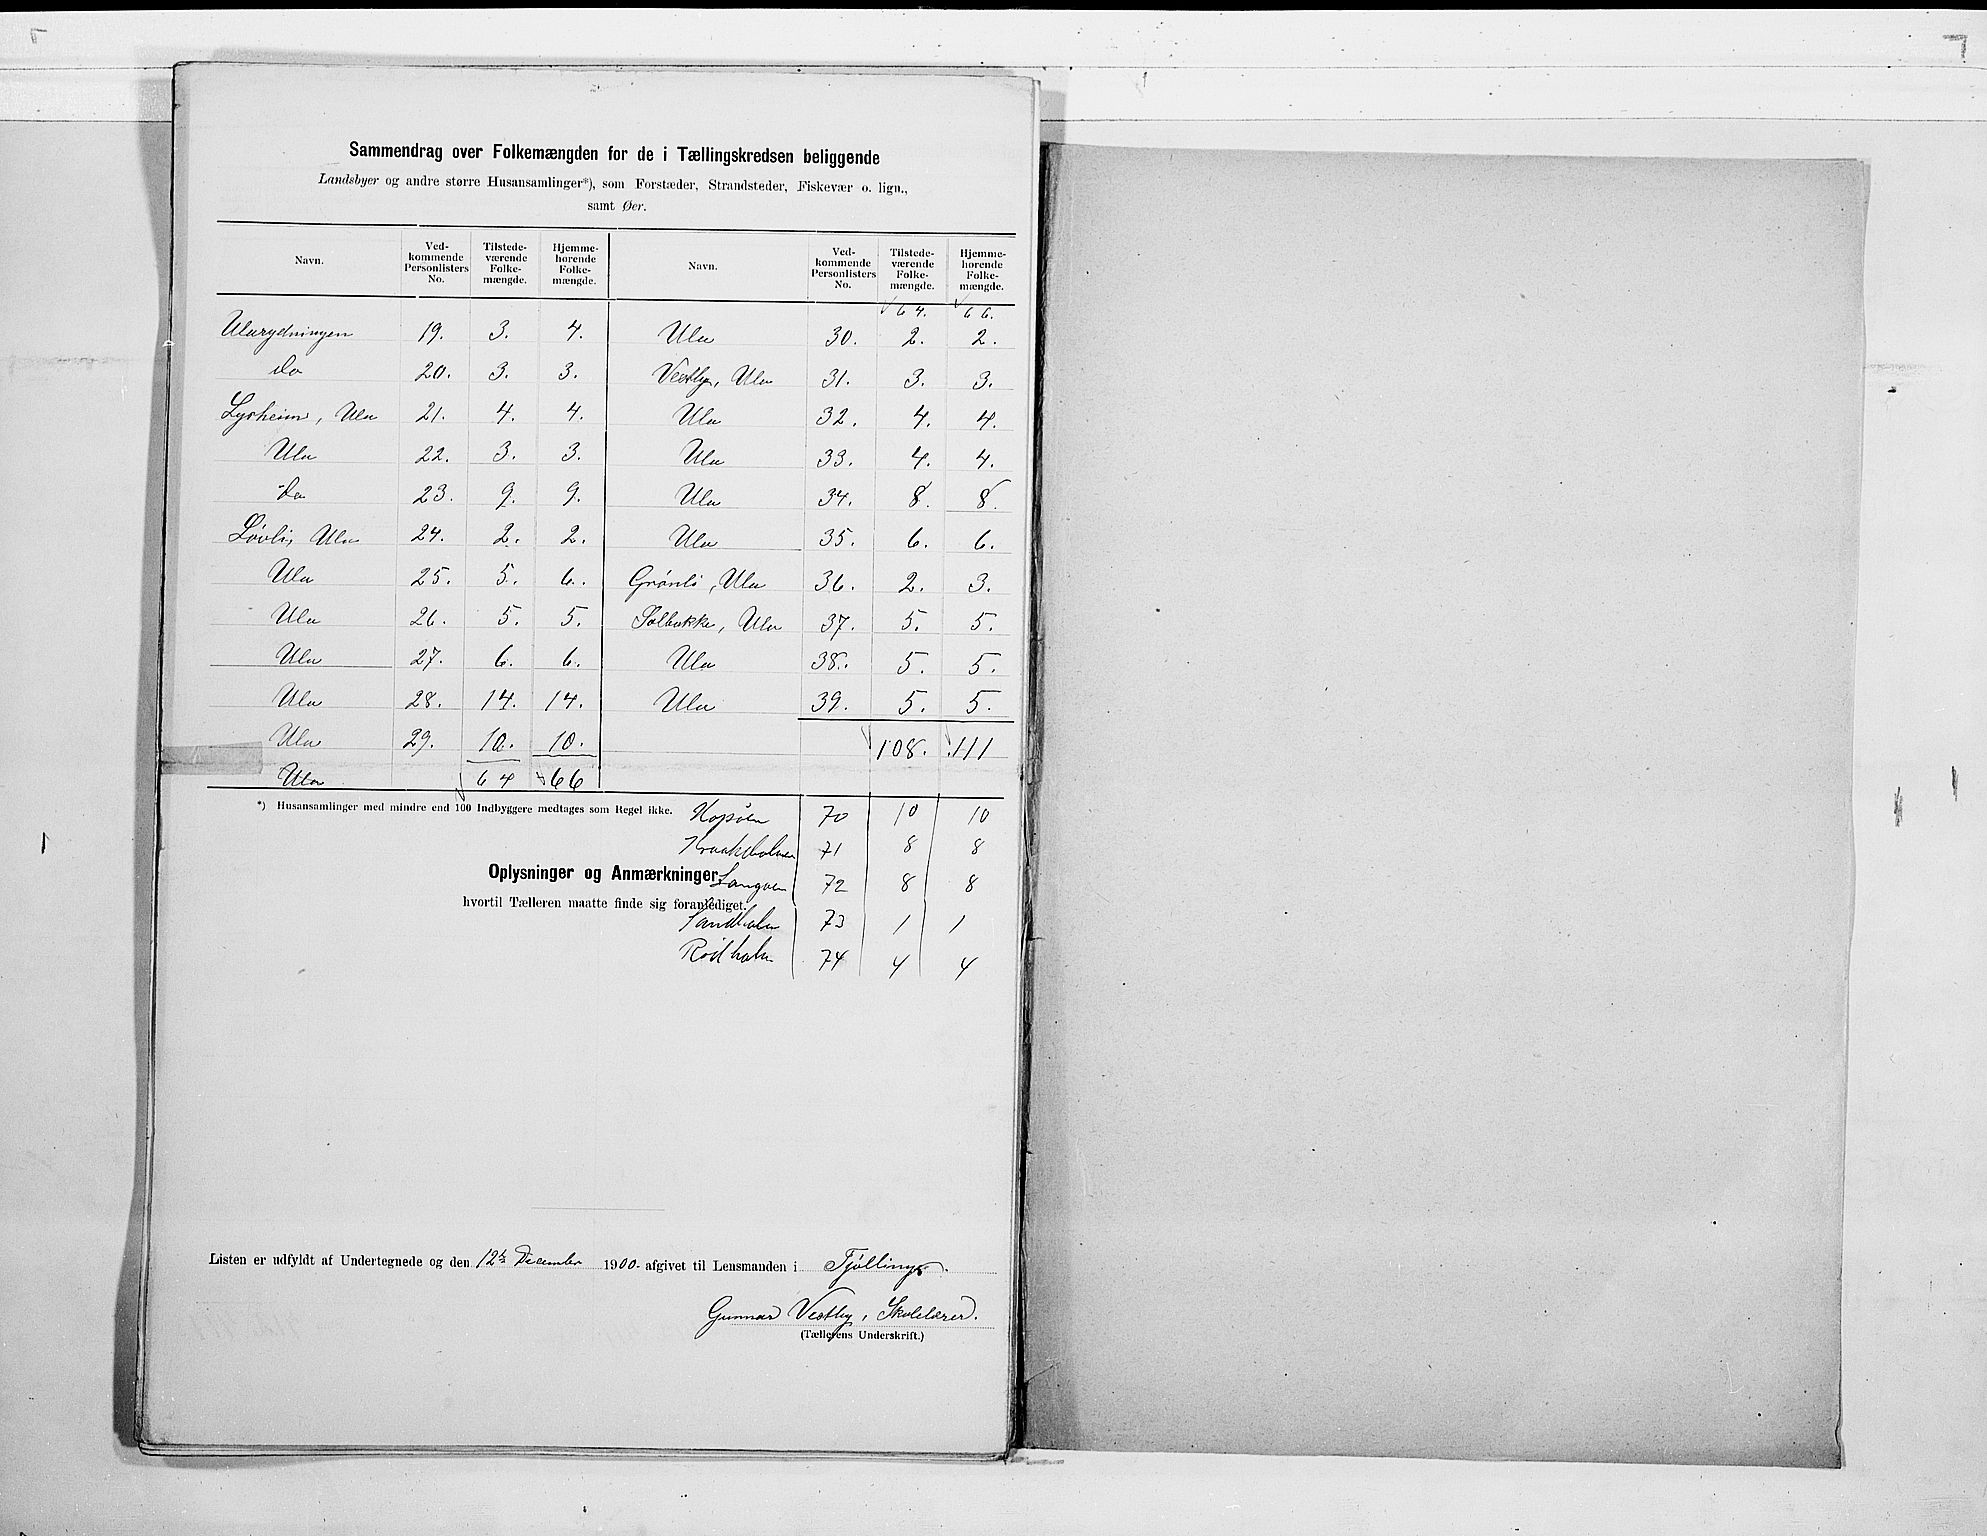 Sammendrag over Folkemængden for de i Tællingskredsen beliggende
Landsbyer og andre større Husansamlinger*), som Forstæder, Strandsteder, Fiskevær o. lign.,
samt Øer.
Navn. Ved-kommende Personlisters No. Tilstede-værende Folke-mængde. Hjemme-hørende Folke-mængde.
Ularydningen 19. 3. 4.
do 20. 3. 3.
Lysheim, Ula 21. 4. 4.
Ula 22. 3. 3.
do 23. 9. 9.
Løvli, Ula 24. 2. 2.
Ula 25. 5. 6.
Ula 26. 5. 5.
Ula 27. 6. 6.
Ula 28. 14. 14.
Ula 29. 10. 10.
Ula 64 66
Navn. Ved-kommende Personlisters No. Tilstede-værende Folke-mængde. Hjemme-hørende Folke-mængde.
64. 66.
Ula 30. 2. 2.
Vestby, Ula 31. 3. 3.
Ula 32. 4. 4.
Ula 33. 4. 4.
Ula 34. 8. 8.
Ula 35. 6. 6.
Grønli, Ula 36. 2. 3.
Solbakke, Ula 37. 5. 5.
Ula 38. 5. 5.
Ula 39. 5. 5.
108. 111
*) Husansamlinger med mindre end 100 Indbyggere medtages som Regel ikke.
70 10 10
71 8 8
Oplysninger og Anmærkninger
Langøen 72 8 8
hvortil Tælleren maatte finde sig foranlediget.
Sandholm 73 1 1
Rødholm 74 4 4
Listen er udfyldt af Undertegnede og den 12te December 1900. afgivet til Lensmanden i Tjølling.
Gunnar Vestby, Skolelærer.
(Tællerens Underskrift.)